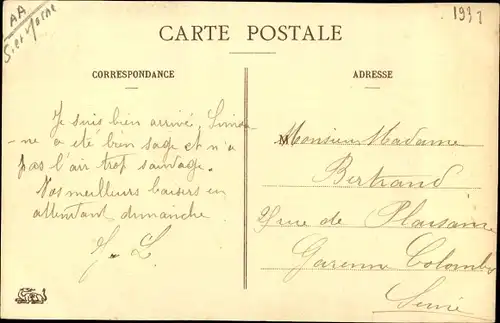 AA
S. et Marne
1937
CARTE POSTALE
CORRESPONDANCE
Je suis bien arrivé, Simon-
-ne a été bien sage et n'a
pas l'air trop sauvage.
Nos meilleurs baisers en
attendant dimanche
ADRESSE
M
Monsieur Madame
Bertrand
rue de Plaisance
Garenne Colombes
Seine